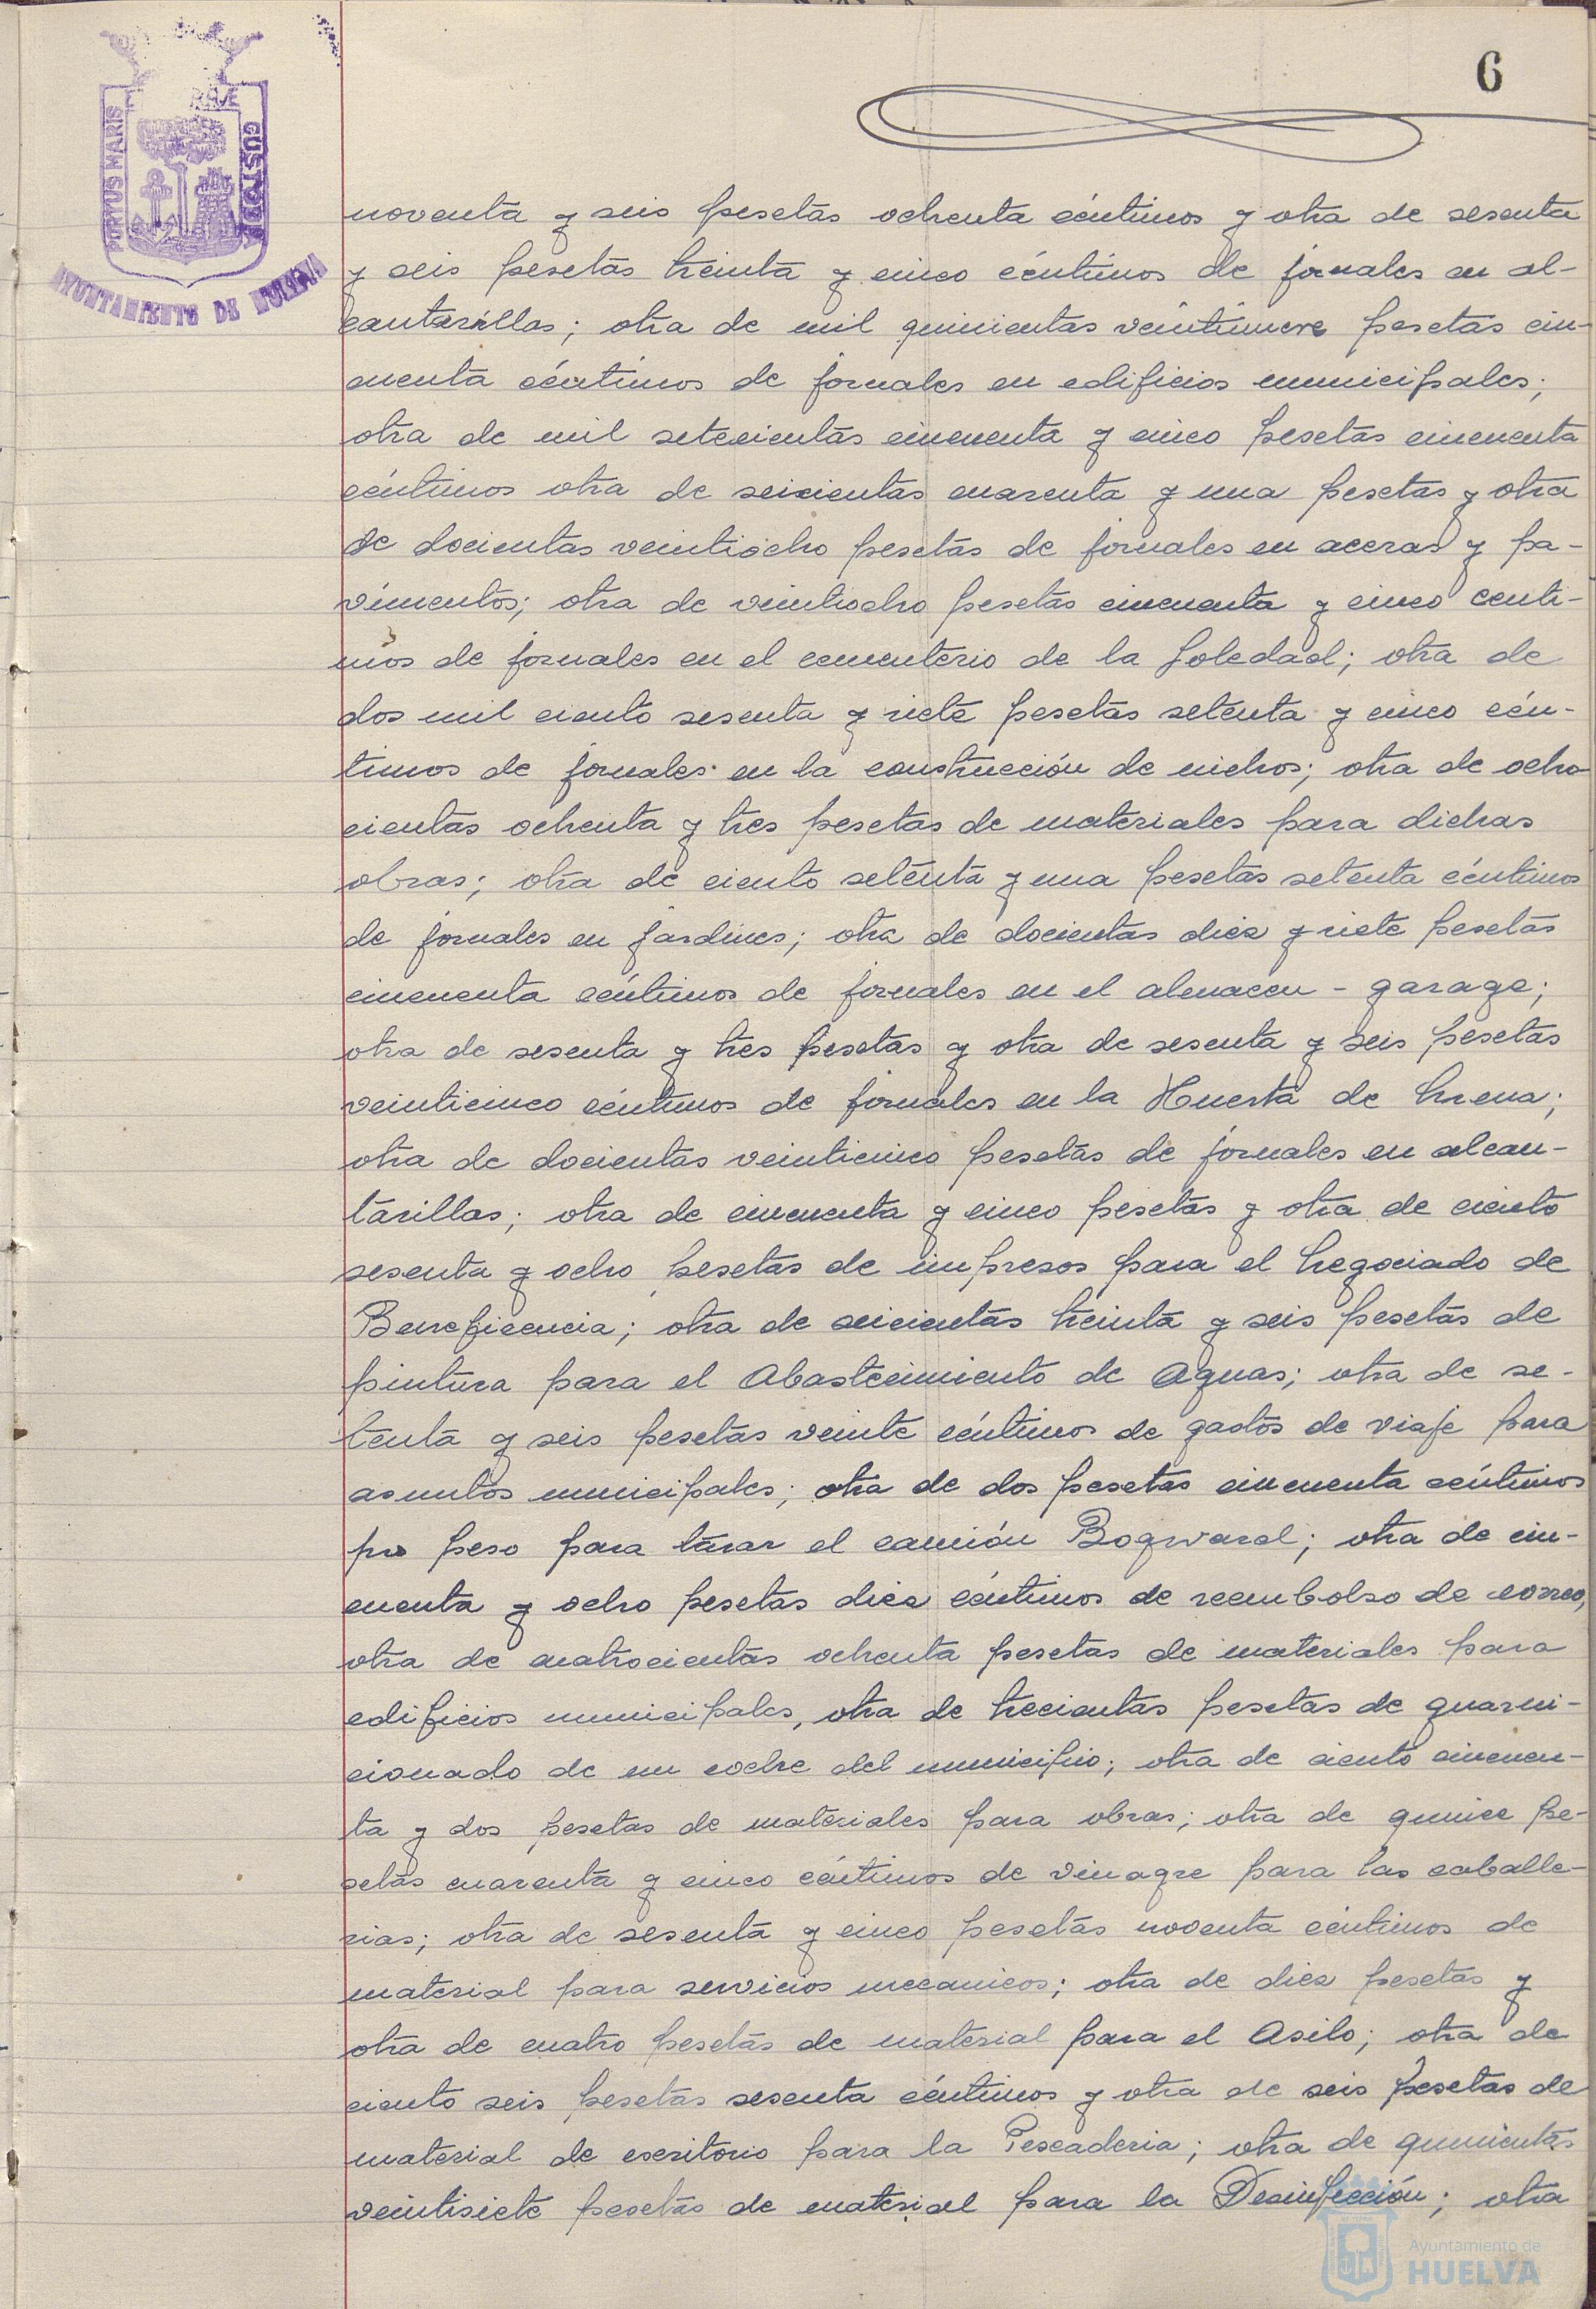 6
PORTUS MARIS
CUSTODIA
AYUNTAMIENTO DE HUELVA
noventa y seis pesetas ochenta céntimos y otra de sesenta
y seis pesetas treinta y cinco céntimos de jornales en al-
cantarillas; otra de mil quinientas veintinueve pesetas cin-
cuenta céntimos de jornales en edificios municipales;
otra de mil setecientas cincuenta y cinco pesetas cincuenta
céntimos otra de seiscientas cuarenta y una pesetas y otra
de docientas veintiocho pesetas de jornales en aceras y pa-
vimentos; otra de veintiocho pesetas cincuenta y cinco centi-
mos de jornales en el cementerio de la Soledad; otra de
dos mil ciento sesenta y siete pesetas setenta y cinco cén-
timos de jornales en la construcción de nichos; otra de ocho
cientas ochenta y tres pesetas de materiales para dichas
obras; otra de ciento setenta y una pesetas setenta céntimos
de jornales en jardines; otra de docientas diez y siete pesetas
cincuenta céntimos de jornales en el almacen - garage;
otra de sesenta y tres pesetas y otra de sesenta y seis pesetas
veinticinco céntimos de jornales en la Huerta de Mena;
otra de docientas veinticinco pesetas de jornales en alcan-
tarillas; otra de cincuenta y cinco pesetas y otra de ciento
sesenta y ocho pesetas de impresos para el Negociado de
Beneficencia; otra de seicientas treinta y seis pesetas de
pintura para el Abastecimiento de Aguas; otra de se-
tenta y seis pesetas veinte céntimos de gastos de viaje para
asuntos municipales; otra de dos pesetas cincuenta céntimos
por peso para tarar el camión Bogward; otra de cin-
cuenta y ocho pesetas diez céntimos de reembolso de correo,
otra de cuatrocientas ochenta pesetas de materiales para
edificios municipales, otra de trecientas pesetas de guarni-
cionado de un coche del municipio; otra de ciento cincuen-
ta y dos pesetas de materiales para obras; otra de quince pe-
setas cuarenta y cinco céntimos de vinagre para las caballe-
rias; otra de sesenta y cinco pesetas noventa céntimos de
material para servicios mecanicos; otra de diez pesetas y
otra de cuatro pesetas de material para el Asilo; otra de
ciento seis pesetas sesenta céntimos y otra de seis pesetas de
material de escritorio para la Pescaderia; otra de quinientas
veintisiete pesetas de material para la Desinfección; otra
Ayuntamiento de
HUELVA